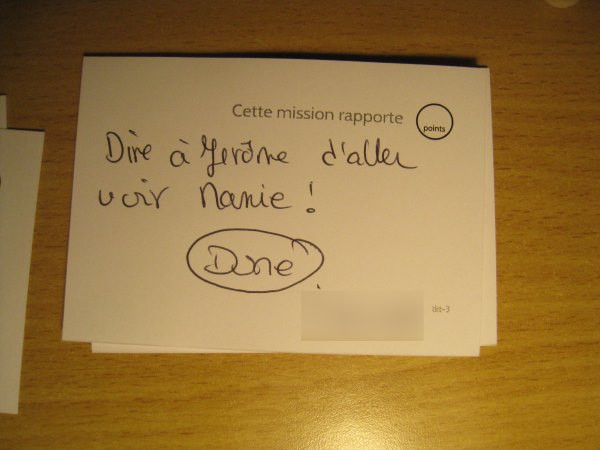 Cette mission rapporte
points
Dire à Jerôme d'aller
voir Nanie !
Done
tkt-3